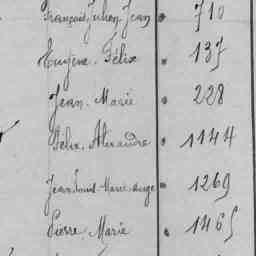 François Julien Jean 710
Eugène Félix 137
Jean Marie 228
Félix Alexandre 1144
Jean Louis Marie Ange 1269
Pierre Marie 1465